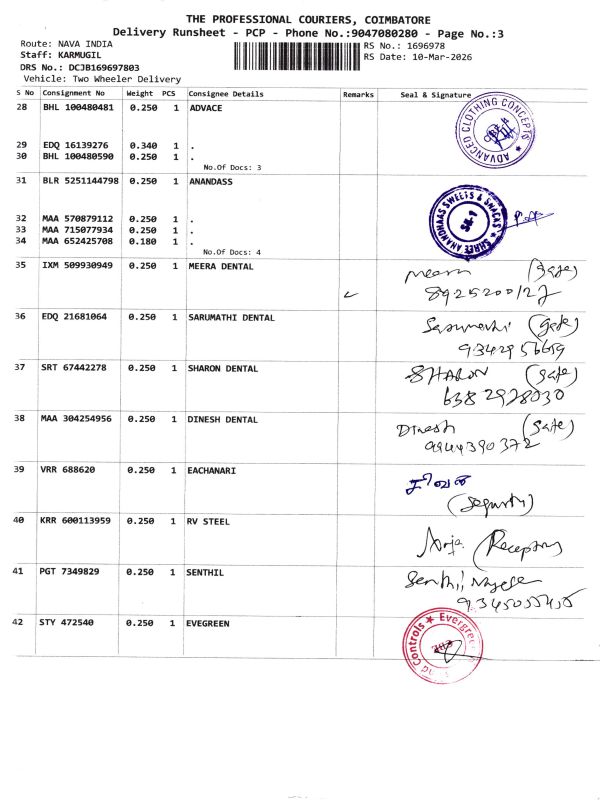 THE PROFESSIONAL COURIERS, COIMBATORE
Delivery Runsheet - PCP - Phone No.:9047080280 - Page No.:3
Route: NAVA INDIA
RS No.: 1696978
Staff: KARMUGIL
RS Date: 10-Mar-2026
DRS No.: DCJB169697803
Vehicle: Two Wheeler Delivery
S No Consignment No Weight PCS Consignee Details Remarks Seal & Signature
28 BHL 100480481 0.250 1 ADVACE
ADVANCED CLOTHING CONCEPTS
29 EDQ 16139276 0.340 1 .
30 BHL 100480590 0.250 1 .
No.Of Docs: 3
31 BLR 5251144798 0.250 1 ANANDASS
SHREE ANANDHAAS SWEETS & SNACKS
32 MAA 570879112 0.250 1 .
33 MAA 715077934 0.250 1 .
34 MAA 652425708 0.180 1 .
No.Of Docs: 4
35 IXM 509930949 0.250 1 MEERA DENTAL Meera (Gate)
8925200127
36 EDQ 21681064 0.250 1 SARUMATHI DENTAL (Gate)
37 SRT 67442278 0.250 1 SHARON DENTAL SHARON (Gate)
6382928030
38 MAA 304254956 0.250 1 DINESH DENTAL Dinesh (Gate)
9944390372
39 VRR 688620 0.250 1 EACHANARI
40 KRR 600113959 0.250 1 RV STEEL
41 PGT 7349829 0.250 1 SENTHIL Senthil
42 STY 472540 0.250 1 EVEGREEN
Controls ★ Evergreen